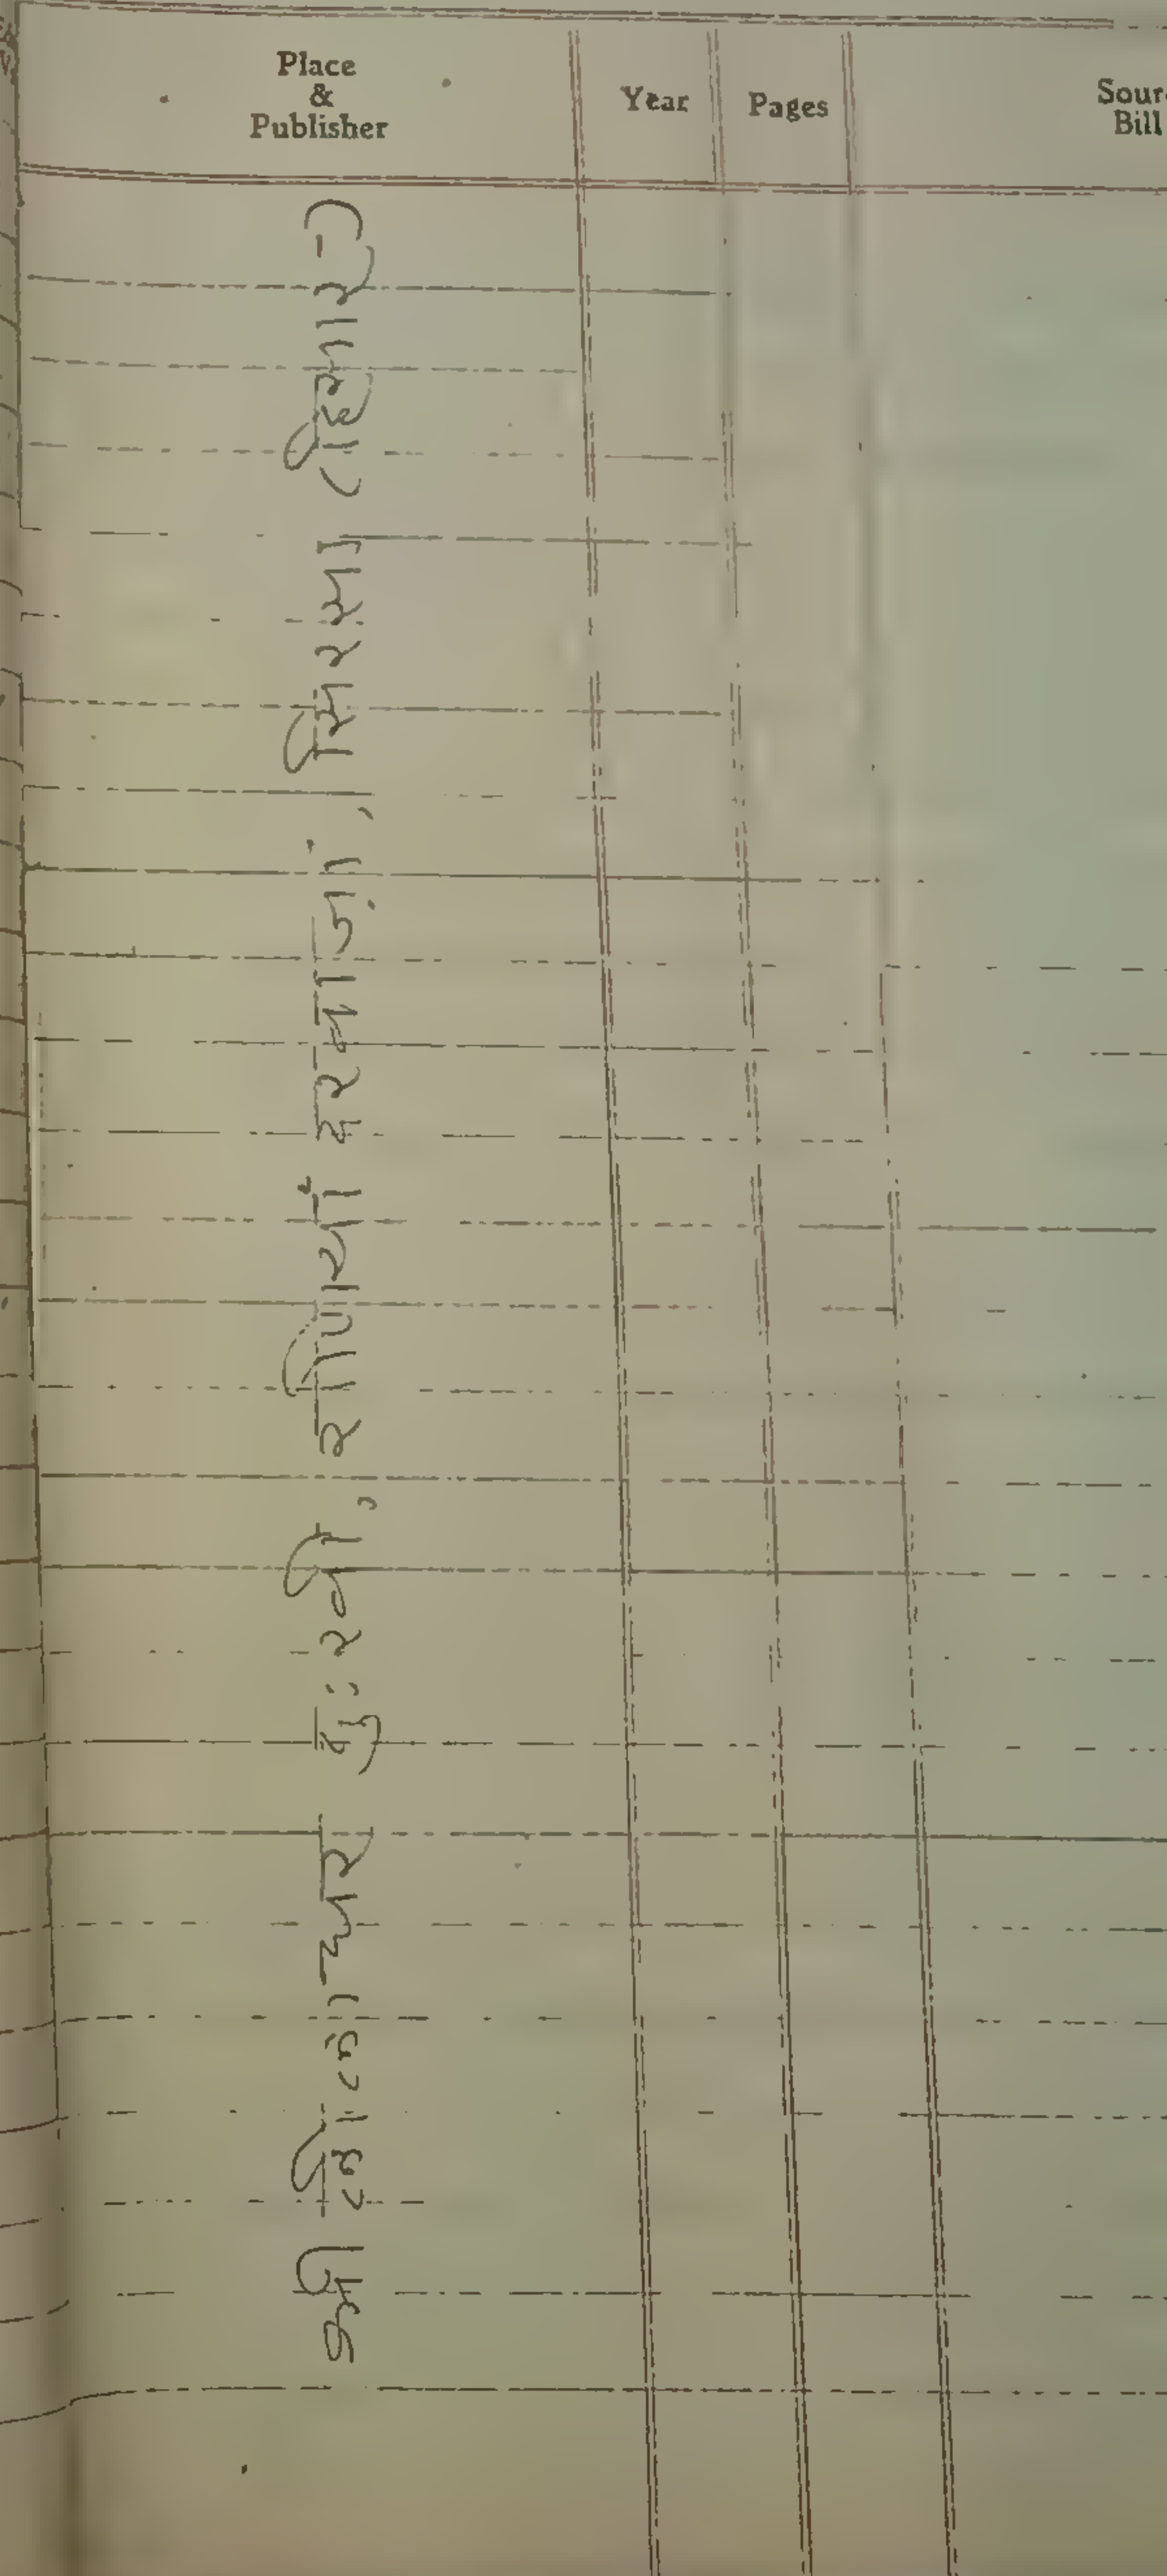 Place
&
Publisher
Year
Pages
Sour
Bill
श्री दिगाम्बर दुःखी, रानियां दरवाजा, सिरसा (हिसार)